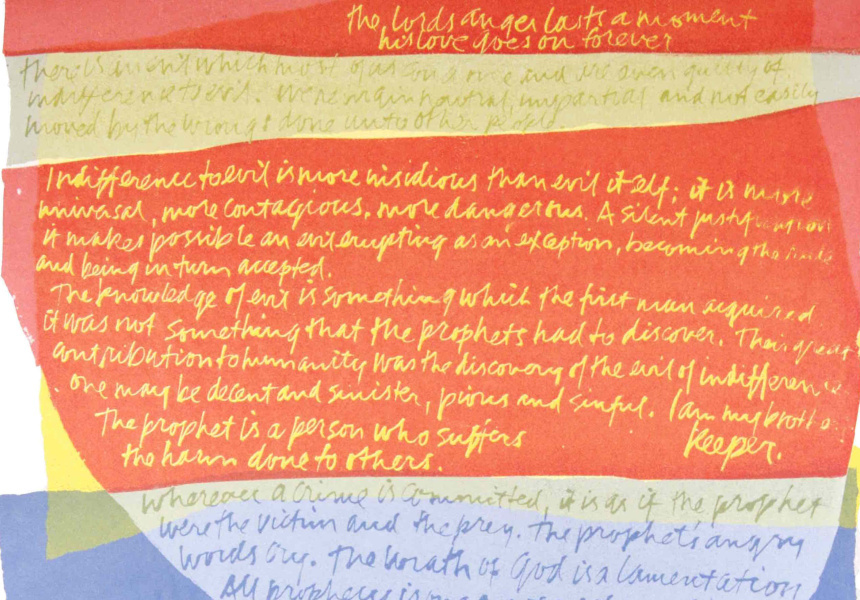 the lords anger lasts a moment
his love goes on forever
there is an evil which most of us condone and are even guilty of
indifference to evil. We remain neutral, impartial and not easily
moved by the wrongs done unto other people.
Indifference to evil is more insidious than evil itself; it is more
universal, more contagious, more dangerous. A silent justification
it makes possible an evil erupting as an exception, becoming the rule
and being in turn accepted.
The knowledge of evil is something which the first man acquired
it was not something that the prophets had to discover. Their great
contribution to humanity was the discovery of the evil of indifference
. one may be decent and sinister, pious and sinful. I am my brother
The prophet is a person who suffers Keeper.
the harm done to others.
whereever a crime is committed, it is as if the prophet
were the victim and the prey. The prophet's angry
words cry. The wrath of God is a lamentation
All prophecy is one